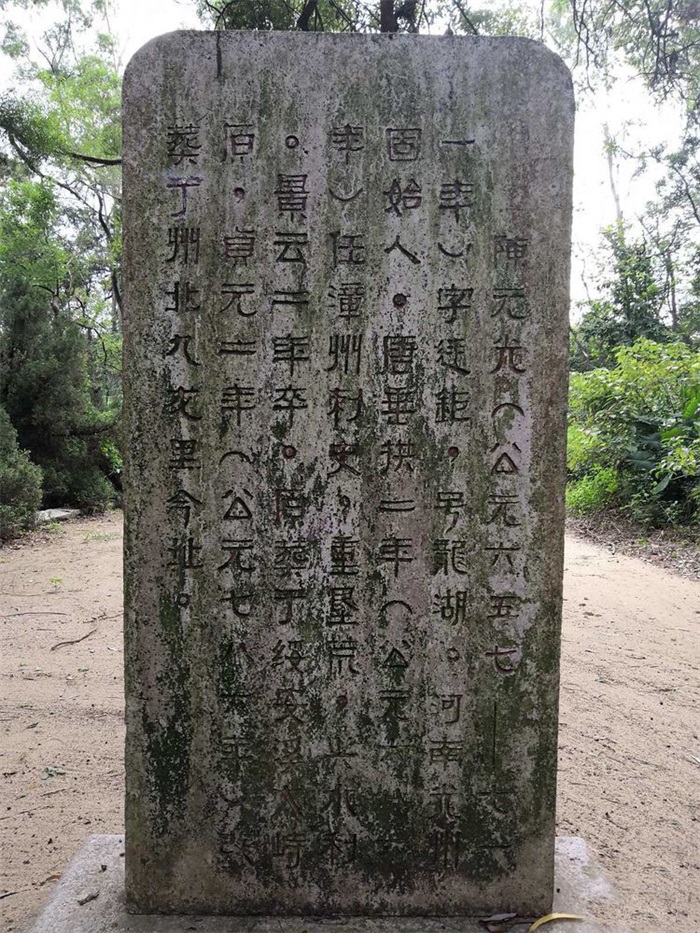 陳元光（公元六五七——七一
一年）字廷鉅，号龍湖。河南光州
固始人。唐垂拱二年（公元六八
年）任漳州刺史，重垦荒，兴水利
。景云二年卒。原葬于绥安溪大峙
原，貞元二年（公元七八六年）
葬于州北九龙里今址。